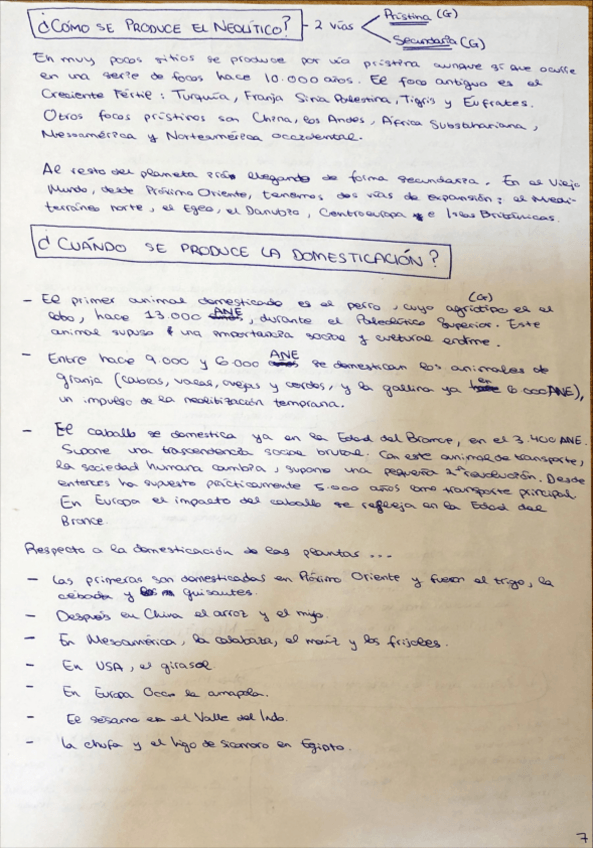 ¿CÓMO SE PRODUCE EL NEOLÍTICO? - 2 vías < Prístina (G)
Secundaria (G)
En muy pocos sitios se produce por vía prístina aunque sí que ocurre
en una serie de focos hace 10.000 años. El foco antiguo es el
Creciente Fértil: Turquía, Franja Siria Palestina, Tigris y Eúfrates.
Otros focos prístinos son China, los Andes, África Subsahariana,
Mesoamérica y Norteamérica occidental.
Al resto del planeta irán llegando de forma secundaria. En el Viejo
Mundo, desde Próximo Oriente, tenemos dos vías de expansión: el Medi-
terráneo norte, el Egeo, el Danubio, Centroeuropa e Islas Británicas.
¿CUÁNDO SE PRODUCE LA DOMESTICACIÓN?
- El primer animal domesticado es el perro, cuyo agriotipo (G) es el
lobo, hace 13.000 ANE, durante el Paleolítico Superior. Este
animal supuso una importancia social y cultural enorme.
- Entre hace 9.000 y 6.000 ANE se domestican los animales de
granja (cabras, vacas, ovejas y cerdos, y la gallina ya en 6.000 ANE),
un impulso de la neolitización temprana.
- El caballo se domestica ya en la Edad del Bronce, en el 3.400 ANE.
Supone una trascendencia social brutal. Con este animal de transporte,
la sociedad humana cambia, supone una pequeña 2ª revolución. Desde
entonces ha supuesto prácticamente 5.000 años como transporte principal.
En Europa el impacto del caballo se refleja en la Edad del
Bronce.
Respecto a la domesticación de las plantas ...
- Las primeras son domesticadas en Próximo Oriente y fueron el trigo, la
cebada y guisantes.
- Después en China el arroz y el mijo.
- En Mesoamérica, la calabaza, el maíz y los frijoles.
- En USA, el girasol.
- En Europa Occ. la amapola.
- El sésamo en el Valle del Indo.
- La chufa y el higo de sicomoro en Egipto.
7